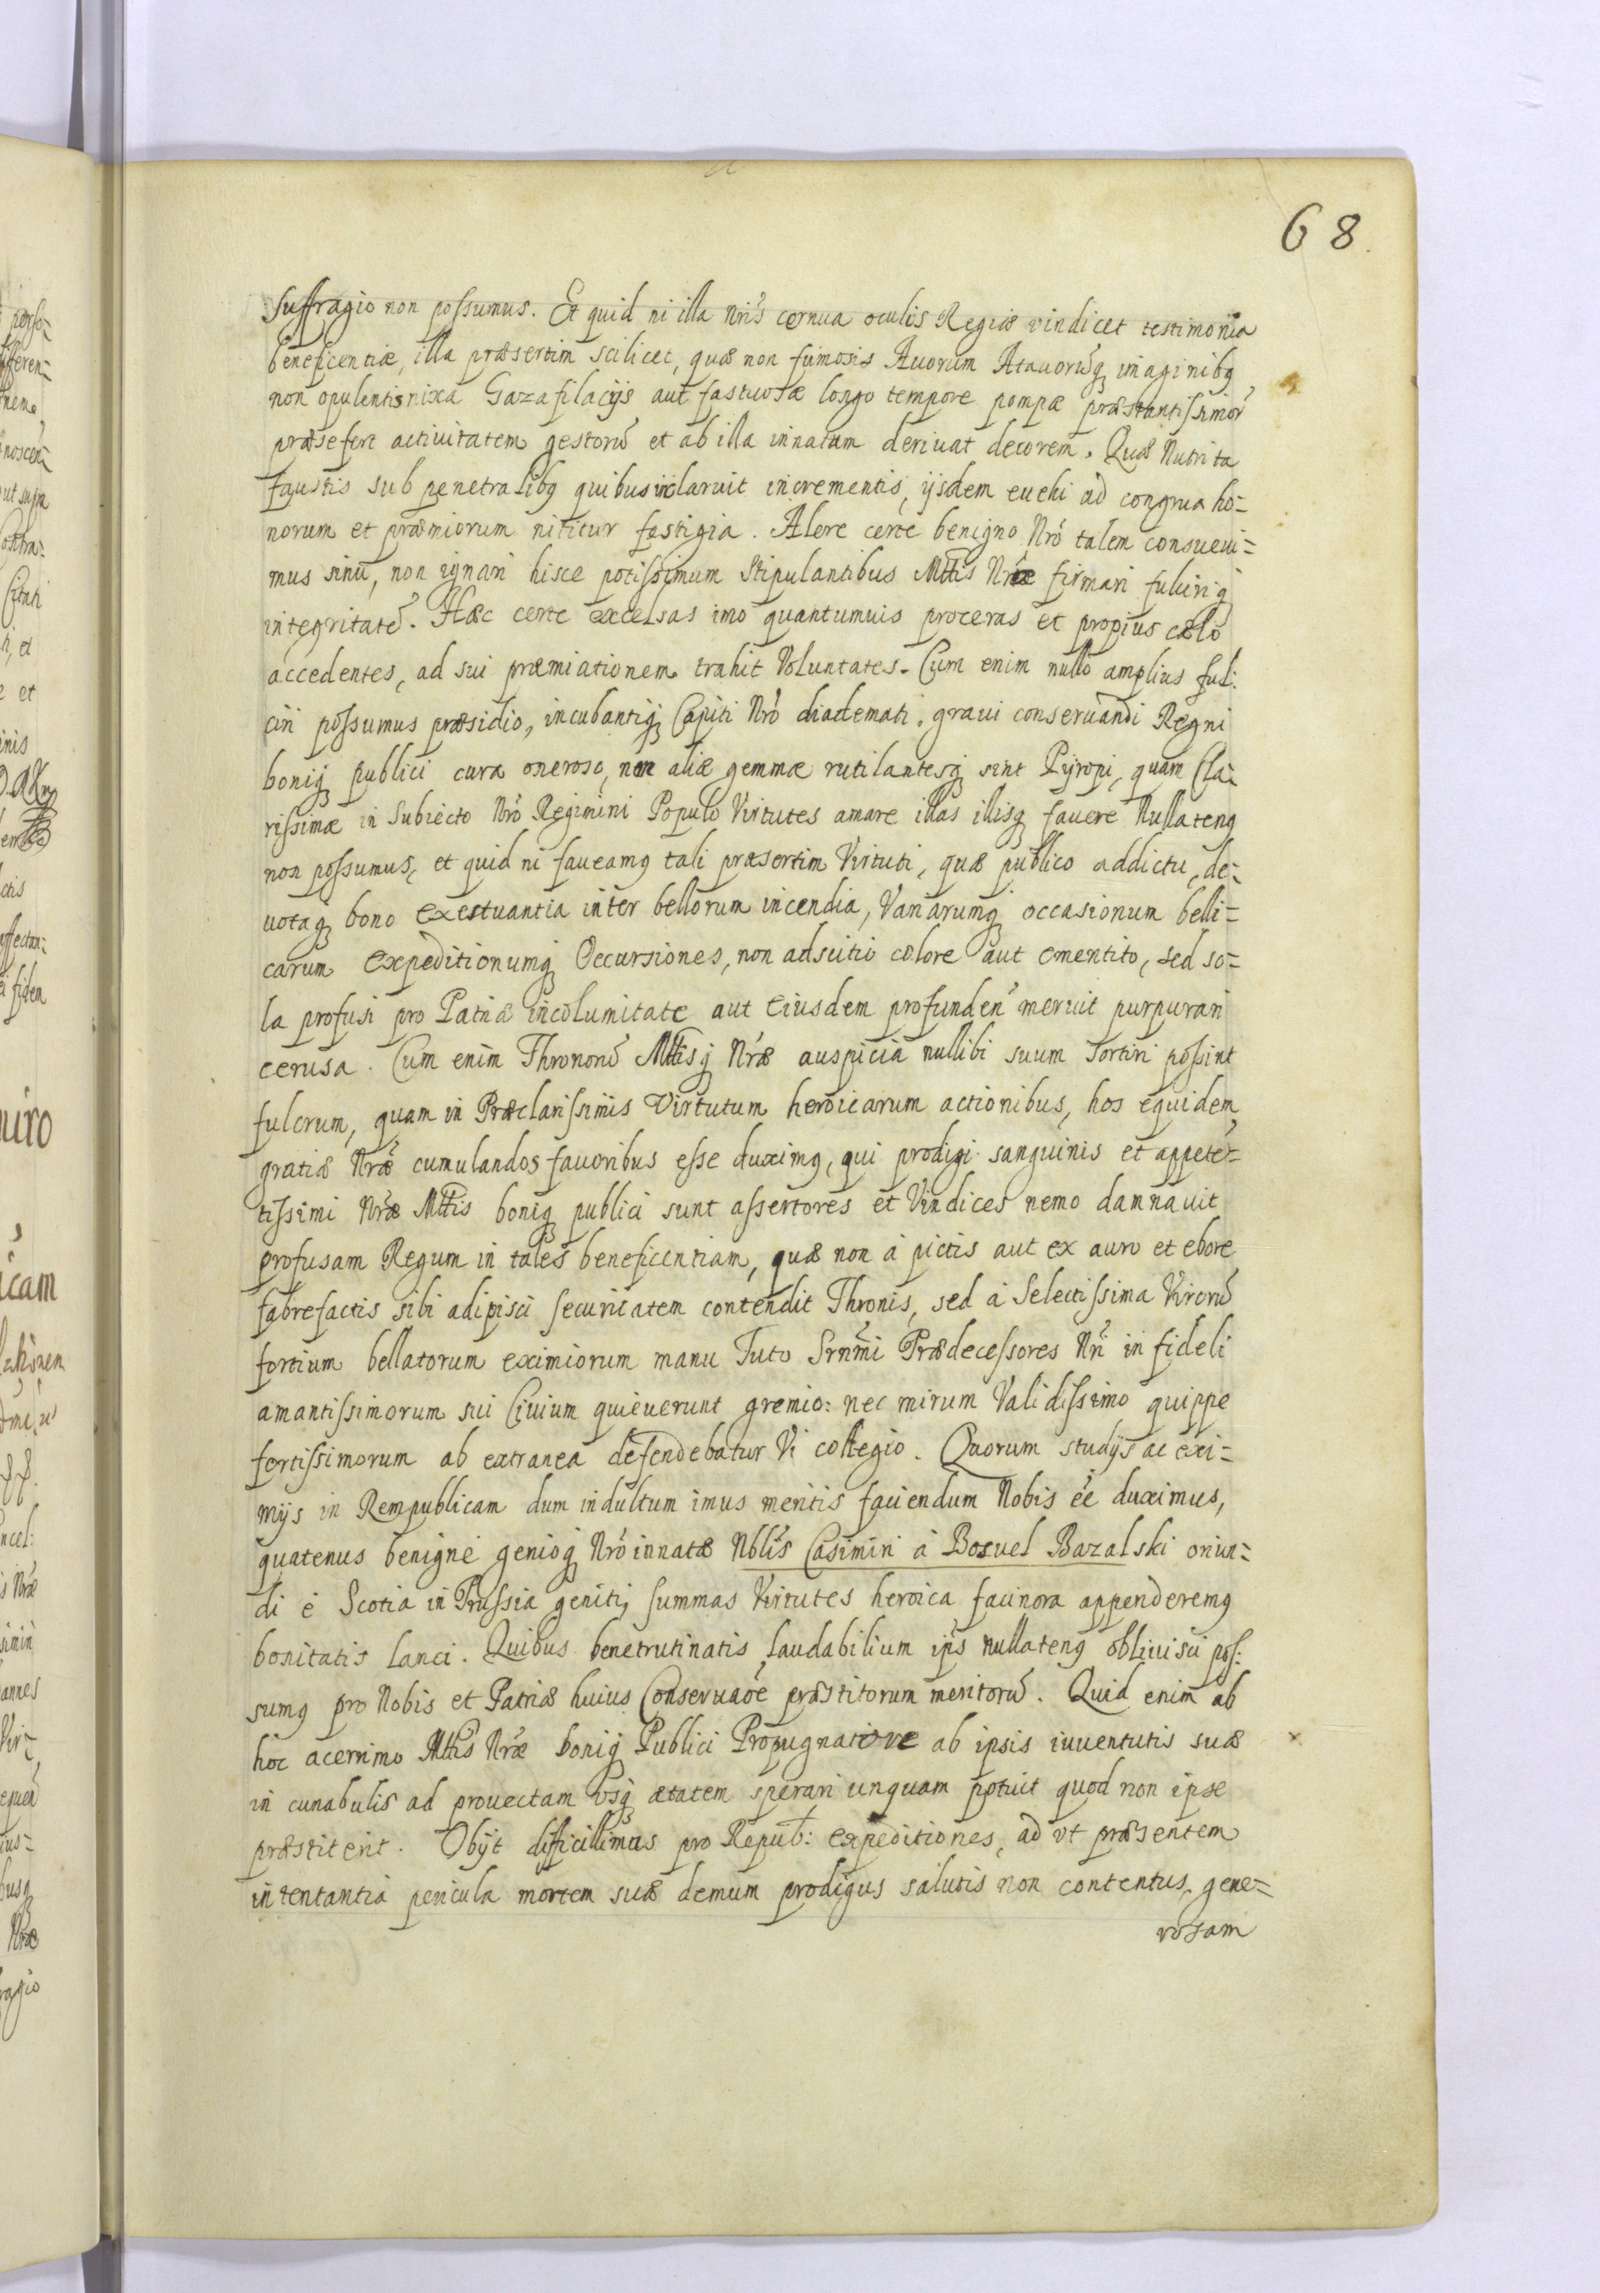 68.
Suffragio non possumus. Et quid ni illa Nrīs cernua oculis Regiæ vindicet testimonia
beneficentiæ, illa præsertim scilicet, quæ non fumosis Auorum Atauorūq imaginibq,
non opulentis nixa Gazafilacijs aut fastuosæ longo tempore pompæ præstantissimor̄
præsefert actiuitatem gestorū et ab illa innatam deriuat decorem. Quæ Nutrita
faustis sub penetralibq quibus inclaruit incrementis, ijsdem euehi ad congrua ho=
norum et præmiorum nititur fastigia. Alere certe benigno Nrō talem consueui=
mus sinū, non ignari hisce potissimum Stipulantibus Mttis Nræ firmari fulciriq
integritatē. Hæc certe excelsas imo quantumuis proceras et propius cælo
accedentes, ad sui præmiationem trahit Voluntates. Cum enim nullo amplius ful:
ciri possumus præsidio, incubantiq Capiti Nrō diademati, graui conseruandi Regni
boniq publici cura oneroso, non aliæ gemmæ rutilantesq sint Pijropi, quam Cla=
rissimæ in Subiecto Nrō Regimini Populo Virtutes amare illas illisq fauere Nullatenq
non possumus, et quid ni faueamq tali præsertim Virtuti, quæ publico addictu, de=
uotaq bono exestuantia inter bellorum incendia, Variarumq occasionum belli=
carum expeditionumq Occursiones, non adscitio colore aut ementito, sed so=
la profusi pro Patriæ incolumitate aut eiusdem profunden̄ meruit purpurari
cerusa. Cum enim Thronorū Mttisq Nræ auspicia nullibi suum sortiri possint
fulcrum, quam in Præclarissimis Virtutum heroicarum actionibus, hos equidem,
gratiæ Nræ cumulandos fauoribus esse duximq, qui prodigi sanguinis et appetē=
tissimi Nræ Mttis boniq publici sunt assertores et Vindices nemo damnauit
profusam Regum in tales beneficentiam, quæ non à pictis aut ex auro et ebore
fabrefactis sibi adipisci securitatem contendit Thronis, sed à Selectissima Virorū
fortium bellatorum eximiorum manu Tuto Srnmi Prædecessores Nrī in fideli
amantissimorum sui Ciuium quieuerunt gremio: nec mirum Validissimo quippe
fortissimorum ab extranea defendebatur Vi collegio. Quorum studijs ac exi=
mijs in Rempublicam dum indultum imus meritis faciendum Nobis eē duximus,
quatenus benigne genioq Nrō innatæ Nblis Casimiri à Bosuel Bazalski oriun=
di è Scotia in Prussia geniti, summas Virtutes heroica facinora appenderemq
bonitatis lanci. Quibus benetrutinatis laudabilium ips nullatenq obliuisci pos:
sumq pro Nobis et Patriæ huius Conseruaōe præstitorum meritorū. Quid enim ab
hoc acerrimo Mttis Nræ boniq Publici Propugnatore ab ipsis iuuentutis suæ
in cunabulis ad prouectam vsq ætatem sperari unquam potuit quod non ipse
præstiterit. Obijt difficillimas pro Repub: expeditiones, ad vt præsentem
intentantia pericula mortem suæ demum prodigus salutis non contentus, gene=
rosam